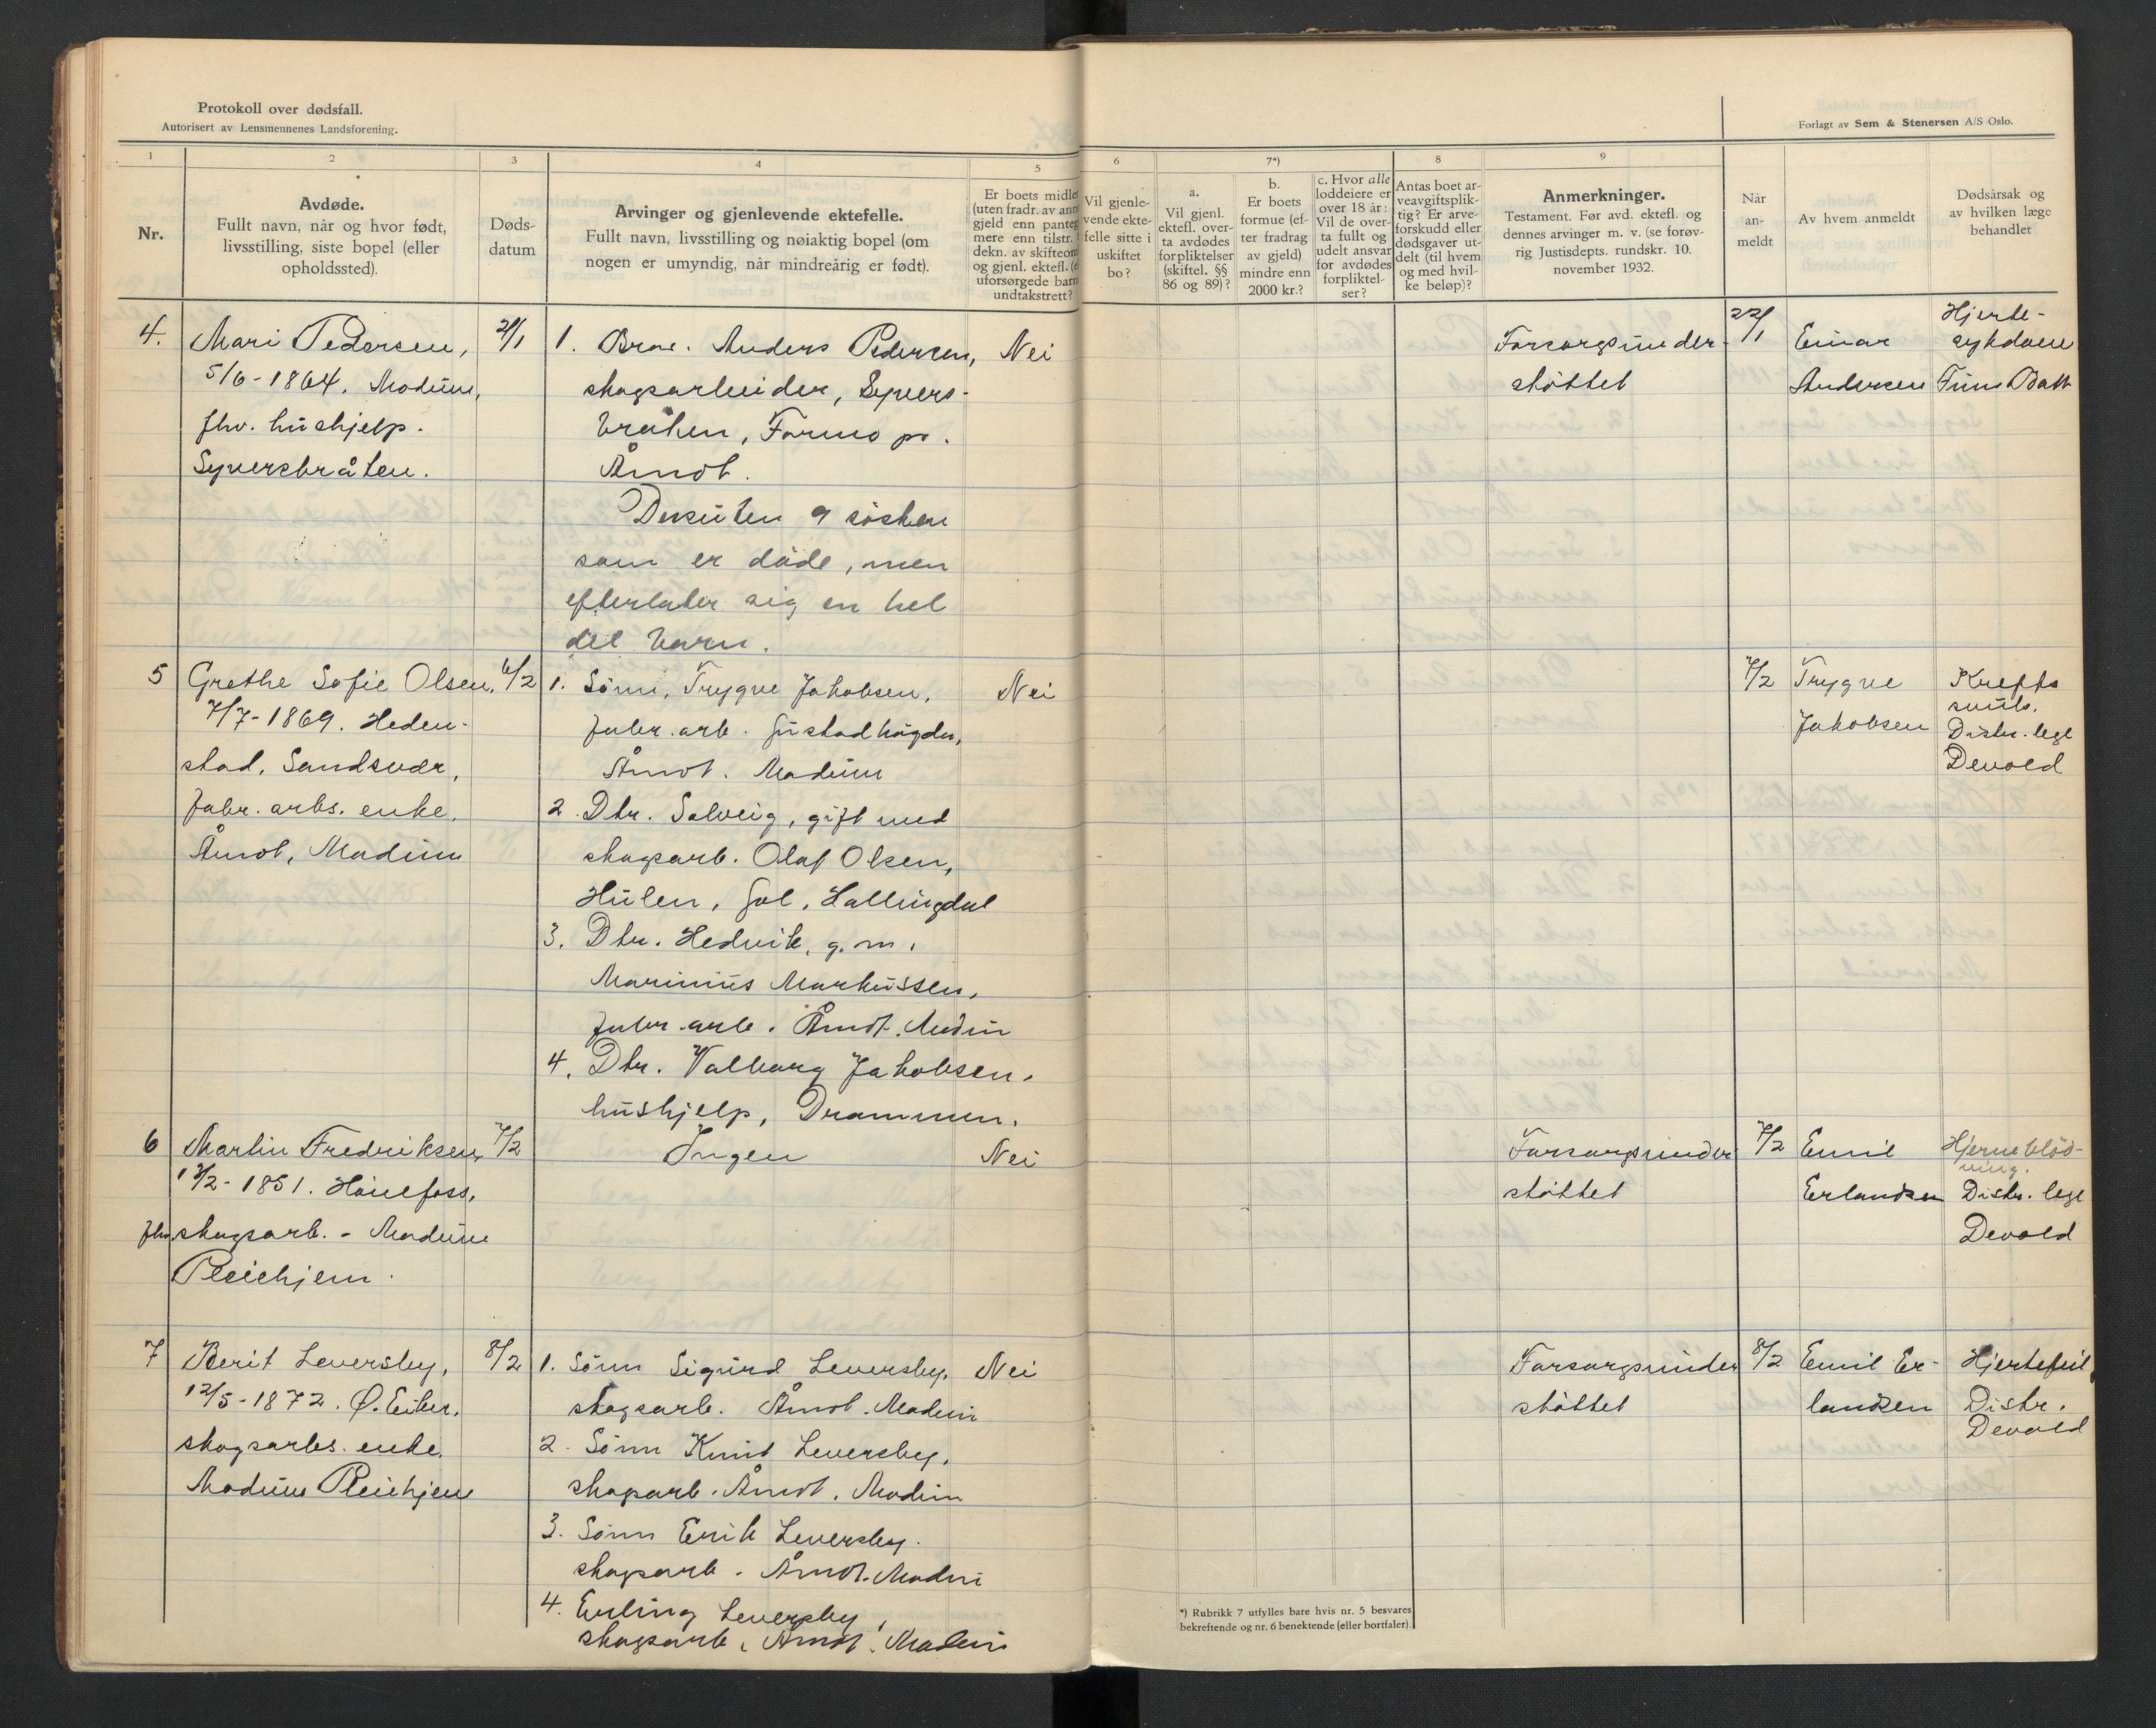 Protokoll over dødsfall.
Autorisert av Lensmennenes Landsforening.
Forlagt av Sem & Stenersen A/S Oslo.
1
2
3
4
5
6
7*)
8
9
Nr.
Avdøde.
Fullt navn, når og hvor født,
livsstilling, siste bopel (eller
opholdssted).
Døds-
datum
Arvinger og gjenlevende ektefelle.
Fullt navn, livsstilling og nøiaktig bopel (om
nogen er umyndig, når mindreårig er født).
Er boets midle
(uten fradr. av ann
gjeld enn panteg
mere enn tilstr.
dekn. av skifteom
og gjenl. ektefl. (e
uforsørgede barn
undtakstrett?
Vil gjenle-
vende ekte-
felle sitte i
uskiftet
bo?
a.
Vil gjenl.
ektefl. over-
ta avdødes
forpliktelser
(skiftel. §§
86 og 89)?
b.
Er boets
formue (ef-
ter fradrag
av gjeld)
mindre enn
2000 kr.?
c. Hvor alle
loddeiere er
over 18 år:
Vil de over-
ta fullt og
udelt ansvar
for avdødes
forpliktel-
ser?
Antas boet ar-
veavgiftsplik-
tig? Er arve-
forskudd eller
dødsgaver ut-
delt (til hvem
og med hvil-
ke beløp)?
Anmerkninger.
Testament. Før avd. ektefl. og
dennes arvinger m. v. (se forøv-
rig Justisdepts. rundskr. 10.
november 1932.
Når
an-
meldt
Av hvem anmeldt
Dødsårsak og
av hvilken læge
behandlet
4.
Mari Pedersen,
5/6-1864. Modum,
fhv. hushjelp.
Syversbråten.
2/1
1. Bror. Anders Pedersen,
skogsarbeider, Syvers-
bråten, Formo pr.
Åmot.
Desuten 9 søsken
som er døde, men
efterlater sig en hel
del barn.
Nei
Forsorgsunder-
støttet
22/1
Einar
Andersen
Hjerte-
sykdom
5
Grethe Sofie Olsen,
7/7-1869. Heden-
stad, Sandsvær,
fabr. arbs. enke.
Åmot, Modum
6/2
1. Sønn, Trygve Jakobsen,
fabr. arb. Gustadhøgda,
Åmot. Modum
2. Dtr. Solveig, gift med
skogsarb. Olaf Olsen,
Hulen, Gol, Hallingdal
3. Dtr. Hedvik, g. m.
Marinius Markussen,
fabr. arb. Åmot. Modum
4. Dtr. Valborg Jakobsen,
hushjelp, Drammen.
Nei
7/2
Trygve
Jakobsen
Krefts
svuls.
Distr. lege
Devold
6
Martin Fredriksen,
13/2-1851. Hønefoss,
fhv. skogsarb. - Modum
Pleiehjem.
7/2
Ingen
Nei
Forsorgsunder
støttet
7/2
Emil
Erlandsen
Hjerneblød-
ning.
Distr. lege
Devold
7
Berit Leversby,
12/5-1872. Ø. Eiker.
skogsarbs. enke.
Modum Pleiehjem
8/2
1. Sønn Sigurd Leversby,
skogsarb. Åmot. Modum
2. Sønn Knut Leversby,
skogsarb. Åmot. Modum
3. Sønn Erik Leversby.
skogsarb. Åmot. Modum
4. Erling Leversby,
skogsarb, Åmot. Modum
Nei
Forsorgsunder
støttet
8/2
Emil Er-
landsen
Hjertefeil,
Distr.
Devold
*) Rubrikk 7 utfylles bare hvis nr. 5 besvares
bekreftende og nr. 6 benektende (eller bortfaler).